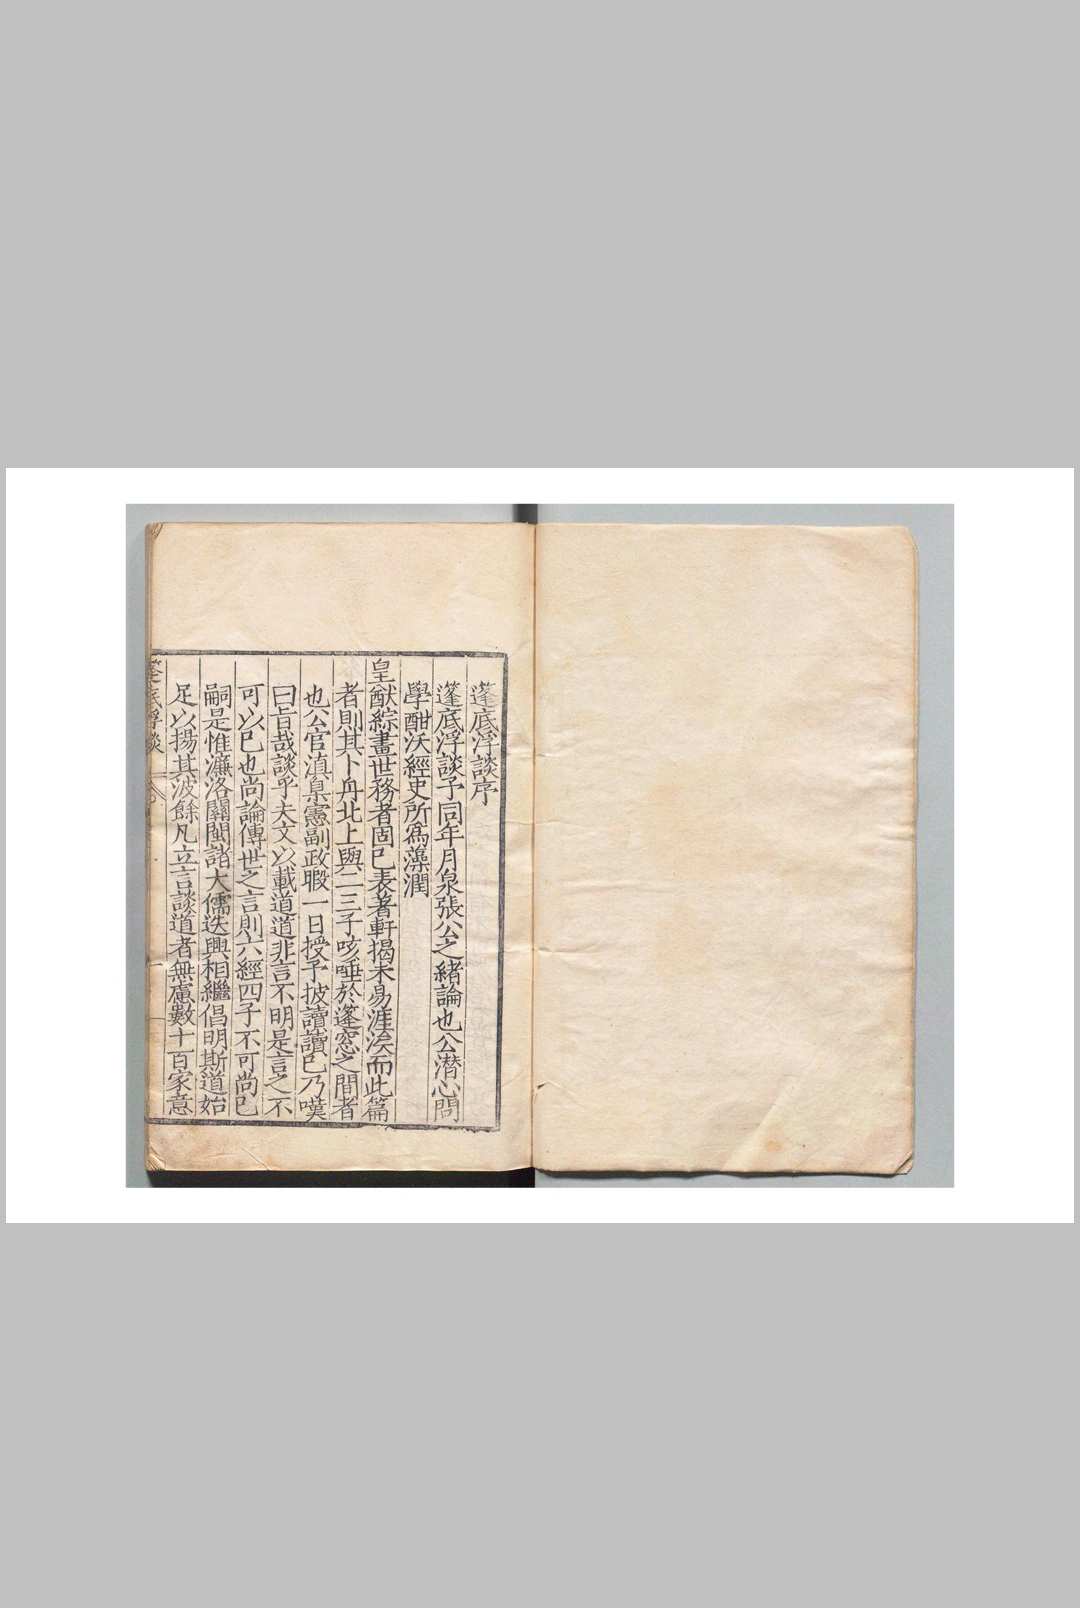 篷底浮談序
篷底浮談予同年月泉張公之緒論也公潛心問
學酣沃經史所爲藻潤
皇猷綜畫世務者固已表著軒揭未易涯涘而此篇
者則其卜舟北上與二三子咳唾於篷窓之間者
也公官滇臬憲副政暇一日授予披讀讀已乃嘆
曰旨哉談乎夫文以載道道非言不明是言之不
可以已也尚論傳世之言則六經四子不可尚已
嗣是惟濂洛關閩諸大儒迭興相繼倡明斯道始
足以揚其波餘凡立言談道者無慮數十百家意
篷底浮談